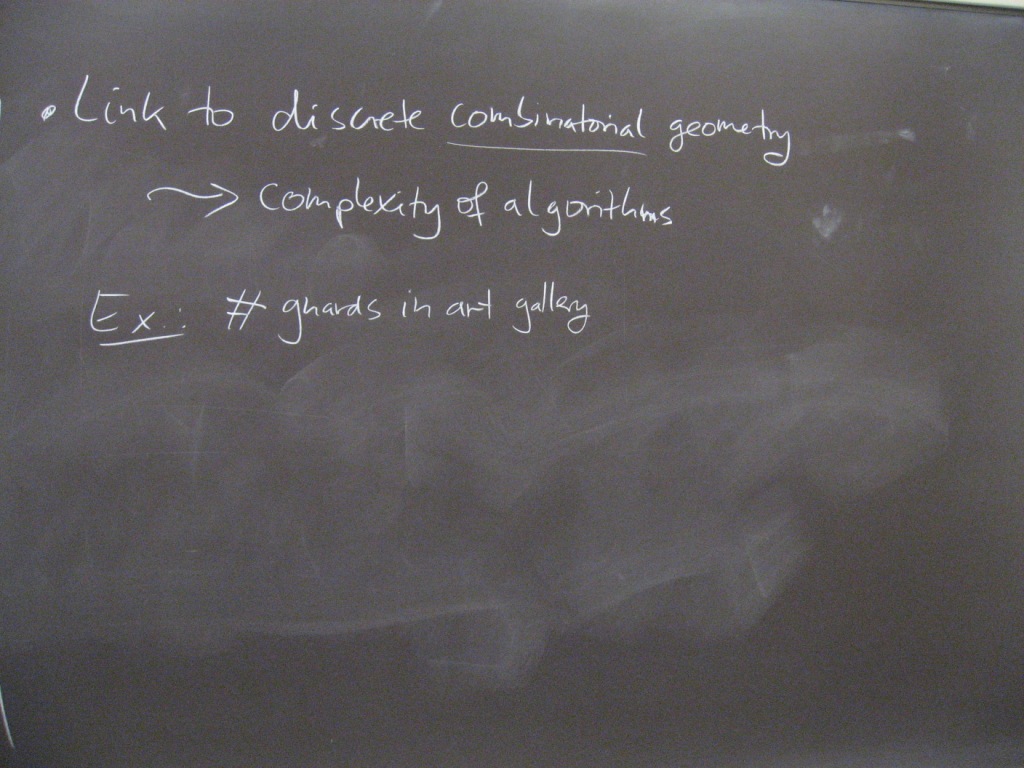 • Link to discrete combinatorial geometry
~> complexity of algorithms
Ex.: # guards in art gallery